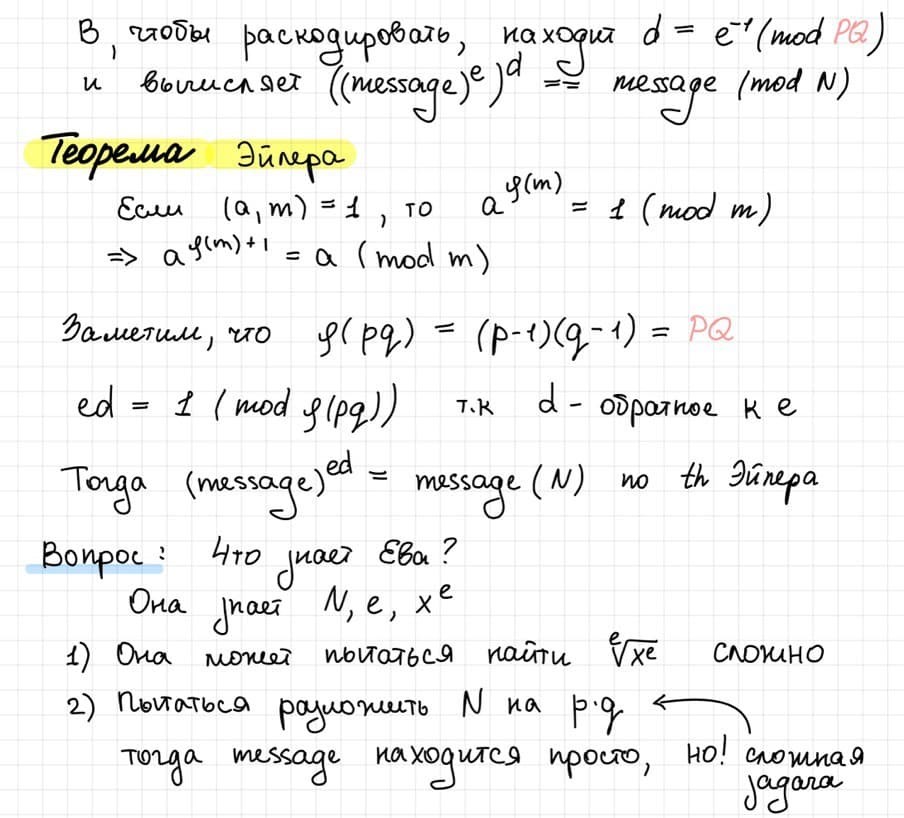 В, чтобы раскодировать, находит d = e⁻¹ (mod PQ)
и вычисляет ((message)ᵉ)ᵈ == message (mod N)
Теорема Эйлера
Если (a, m) = 1, то a^φ(m) = 1 (mod m)
=> a^φ(m)+1 = a (mod m)
Заметим, что φ(pq) = (p-1)(q-1) = PQ
ed = 1 (mod φ(pq)) т.к d - обратное к e
Тогда (message)^ed = message (N) по th Эйлера
Вопрос: Что знает Ева?
Она знает N, e, xᵉ
1) Она может пытаться найти ᵉ√xe сложно
2) Пытаться разложить N на p·q
тогда message находится просто, но! сложная
задача